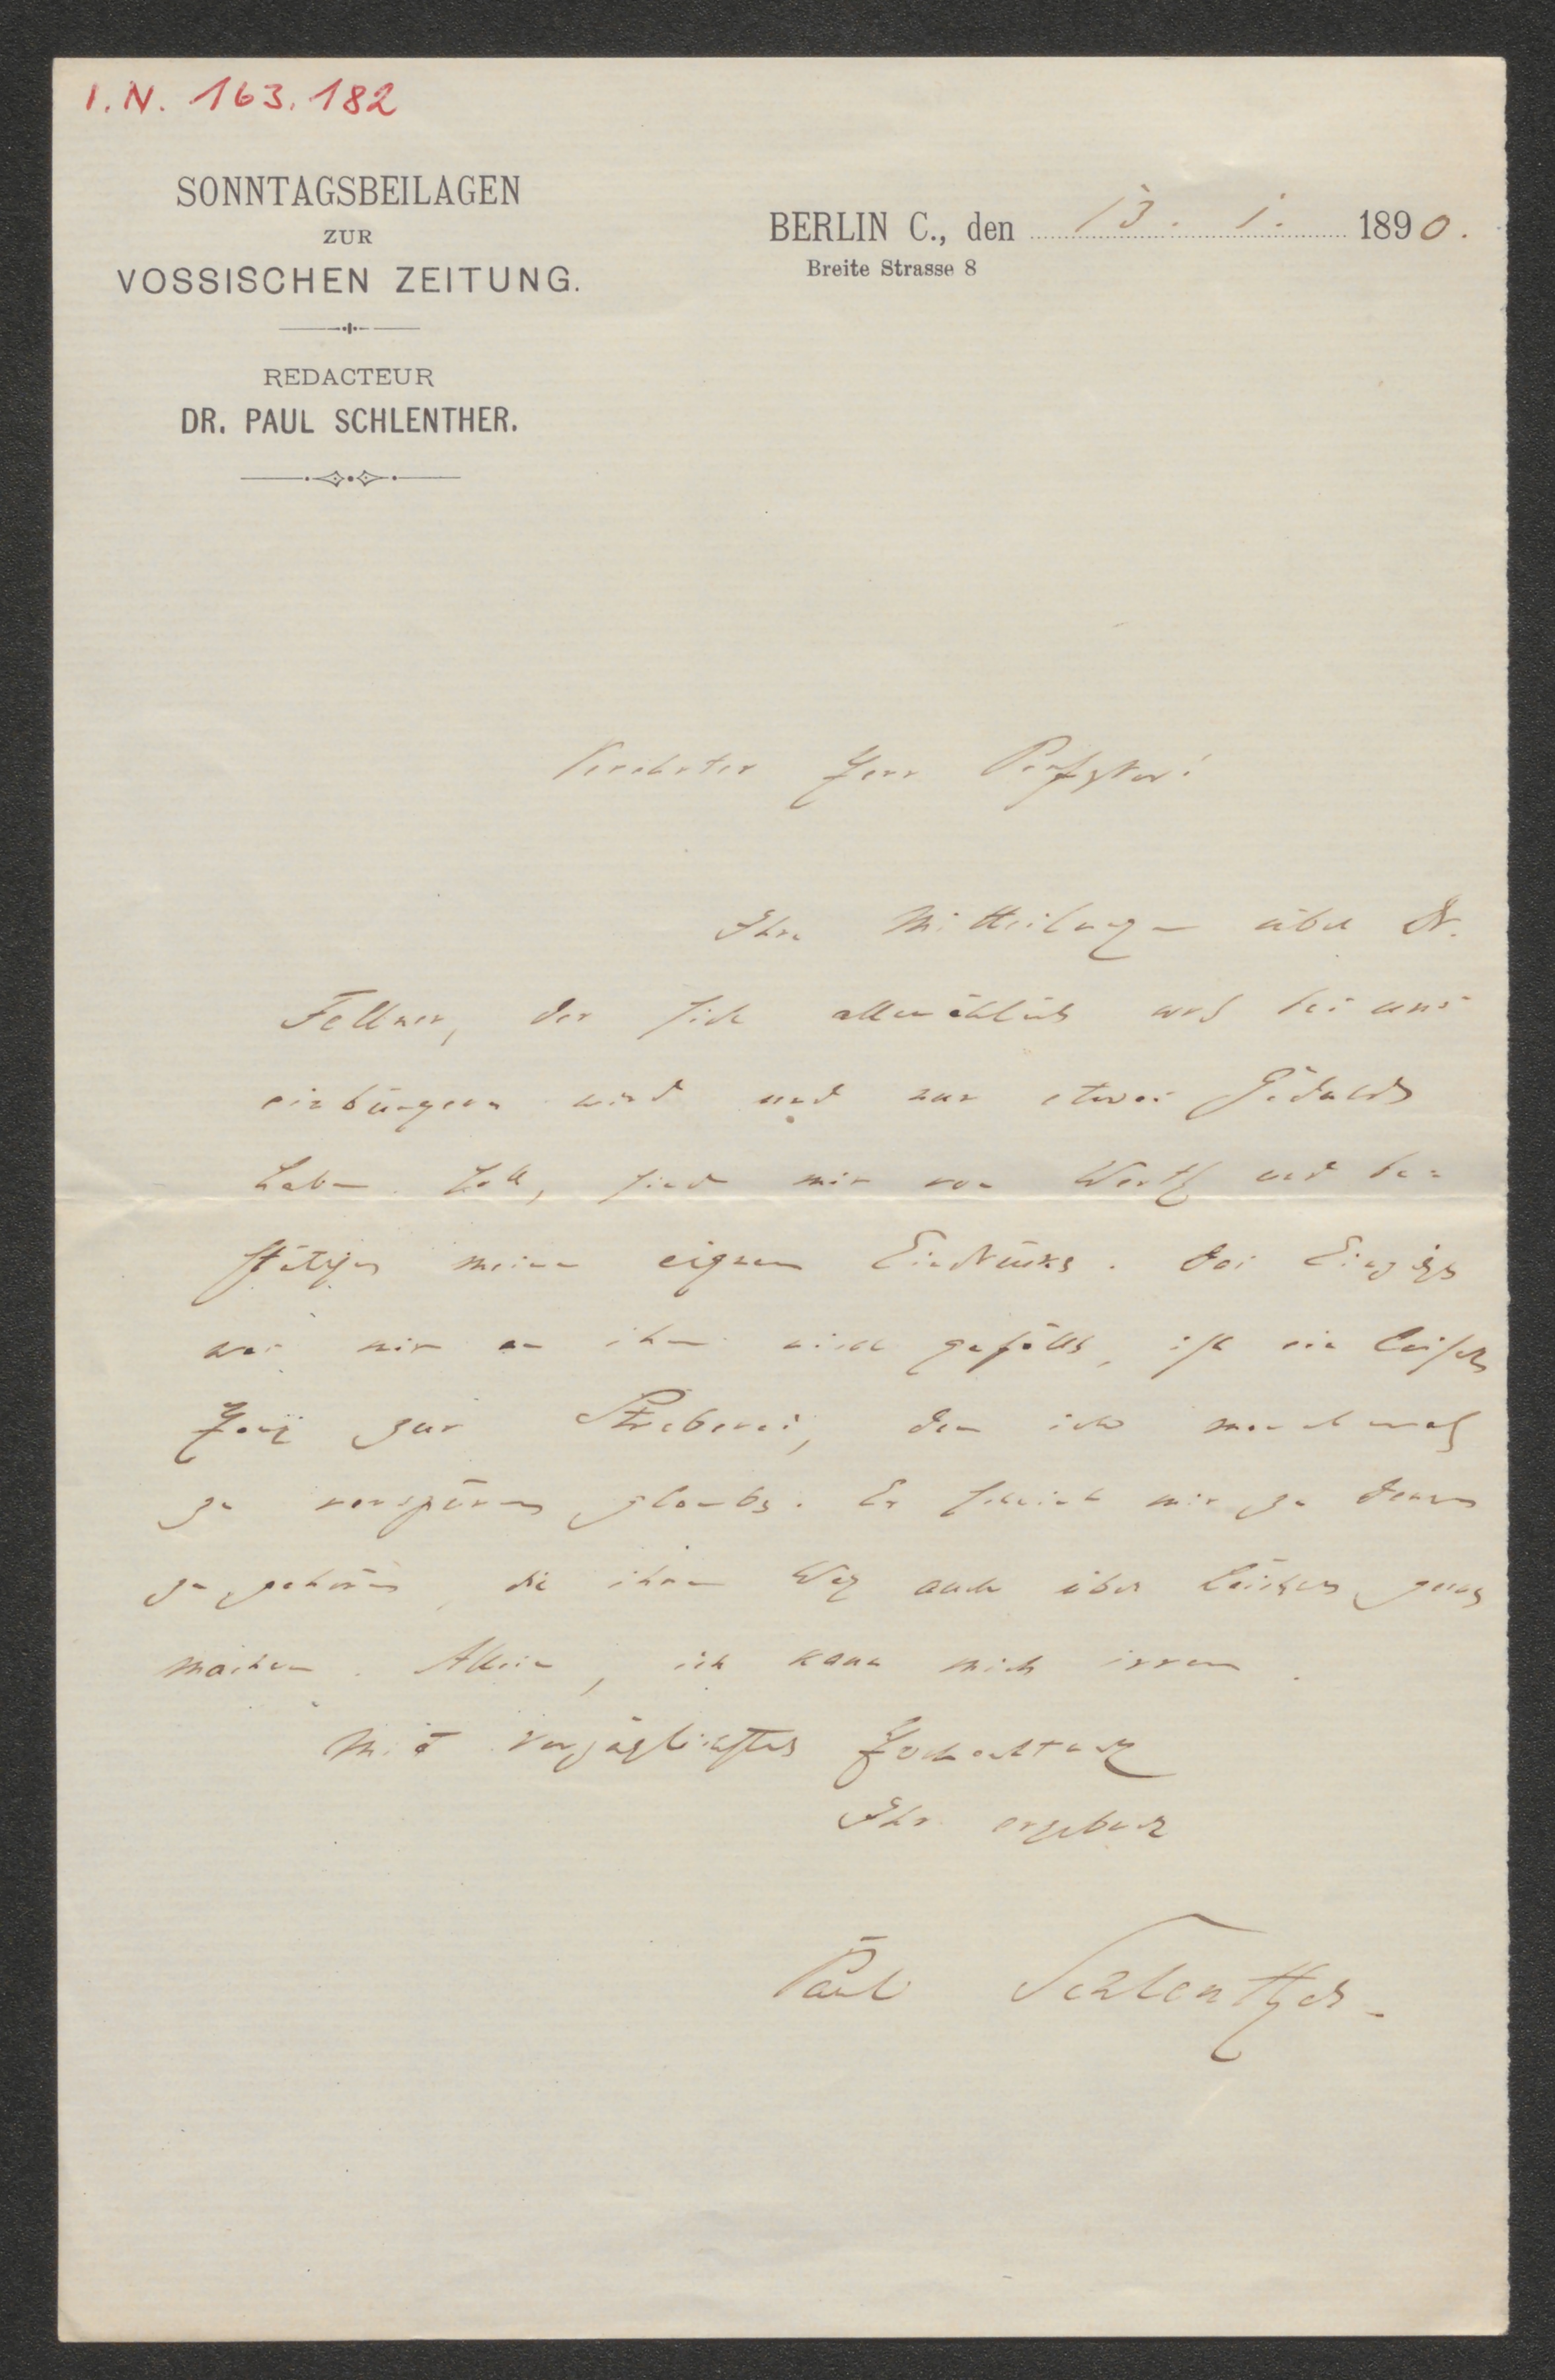 I.N. 163.182
SONNTAGSBEILAGEN
ZUR
VOSSISCHEN ZEITUNG.
REDACTEUR
DR. PAUL SCHLENTHER.
BERLIN C., den 13. 1. 1890.
Breite Strasse 8
Verehrter Herr Professor!
Ihre Mittheilungen über Dr.
Fellner, der sich allmählich wohl bei uns
einbürgern wird und nur etwas Geduld
haben soll, sind mir von Werth und be-
stätigen meine eignen Eindrücke. Das Einzige
was mir an ihm nicht gefällt, ist ein leiser
Hang zur Streberei, den ich manchmal
zu verspüren glaube. Er scheint mir zu denen
zu gehören, die ihren Weg auch über Leichen gerne
machen. Allein, ich kann mich irren.
Mit vorzüglichster Hochachtung
Ihr ergebener
Paul Schlenther.